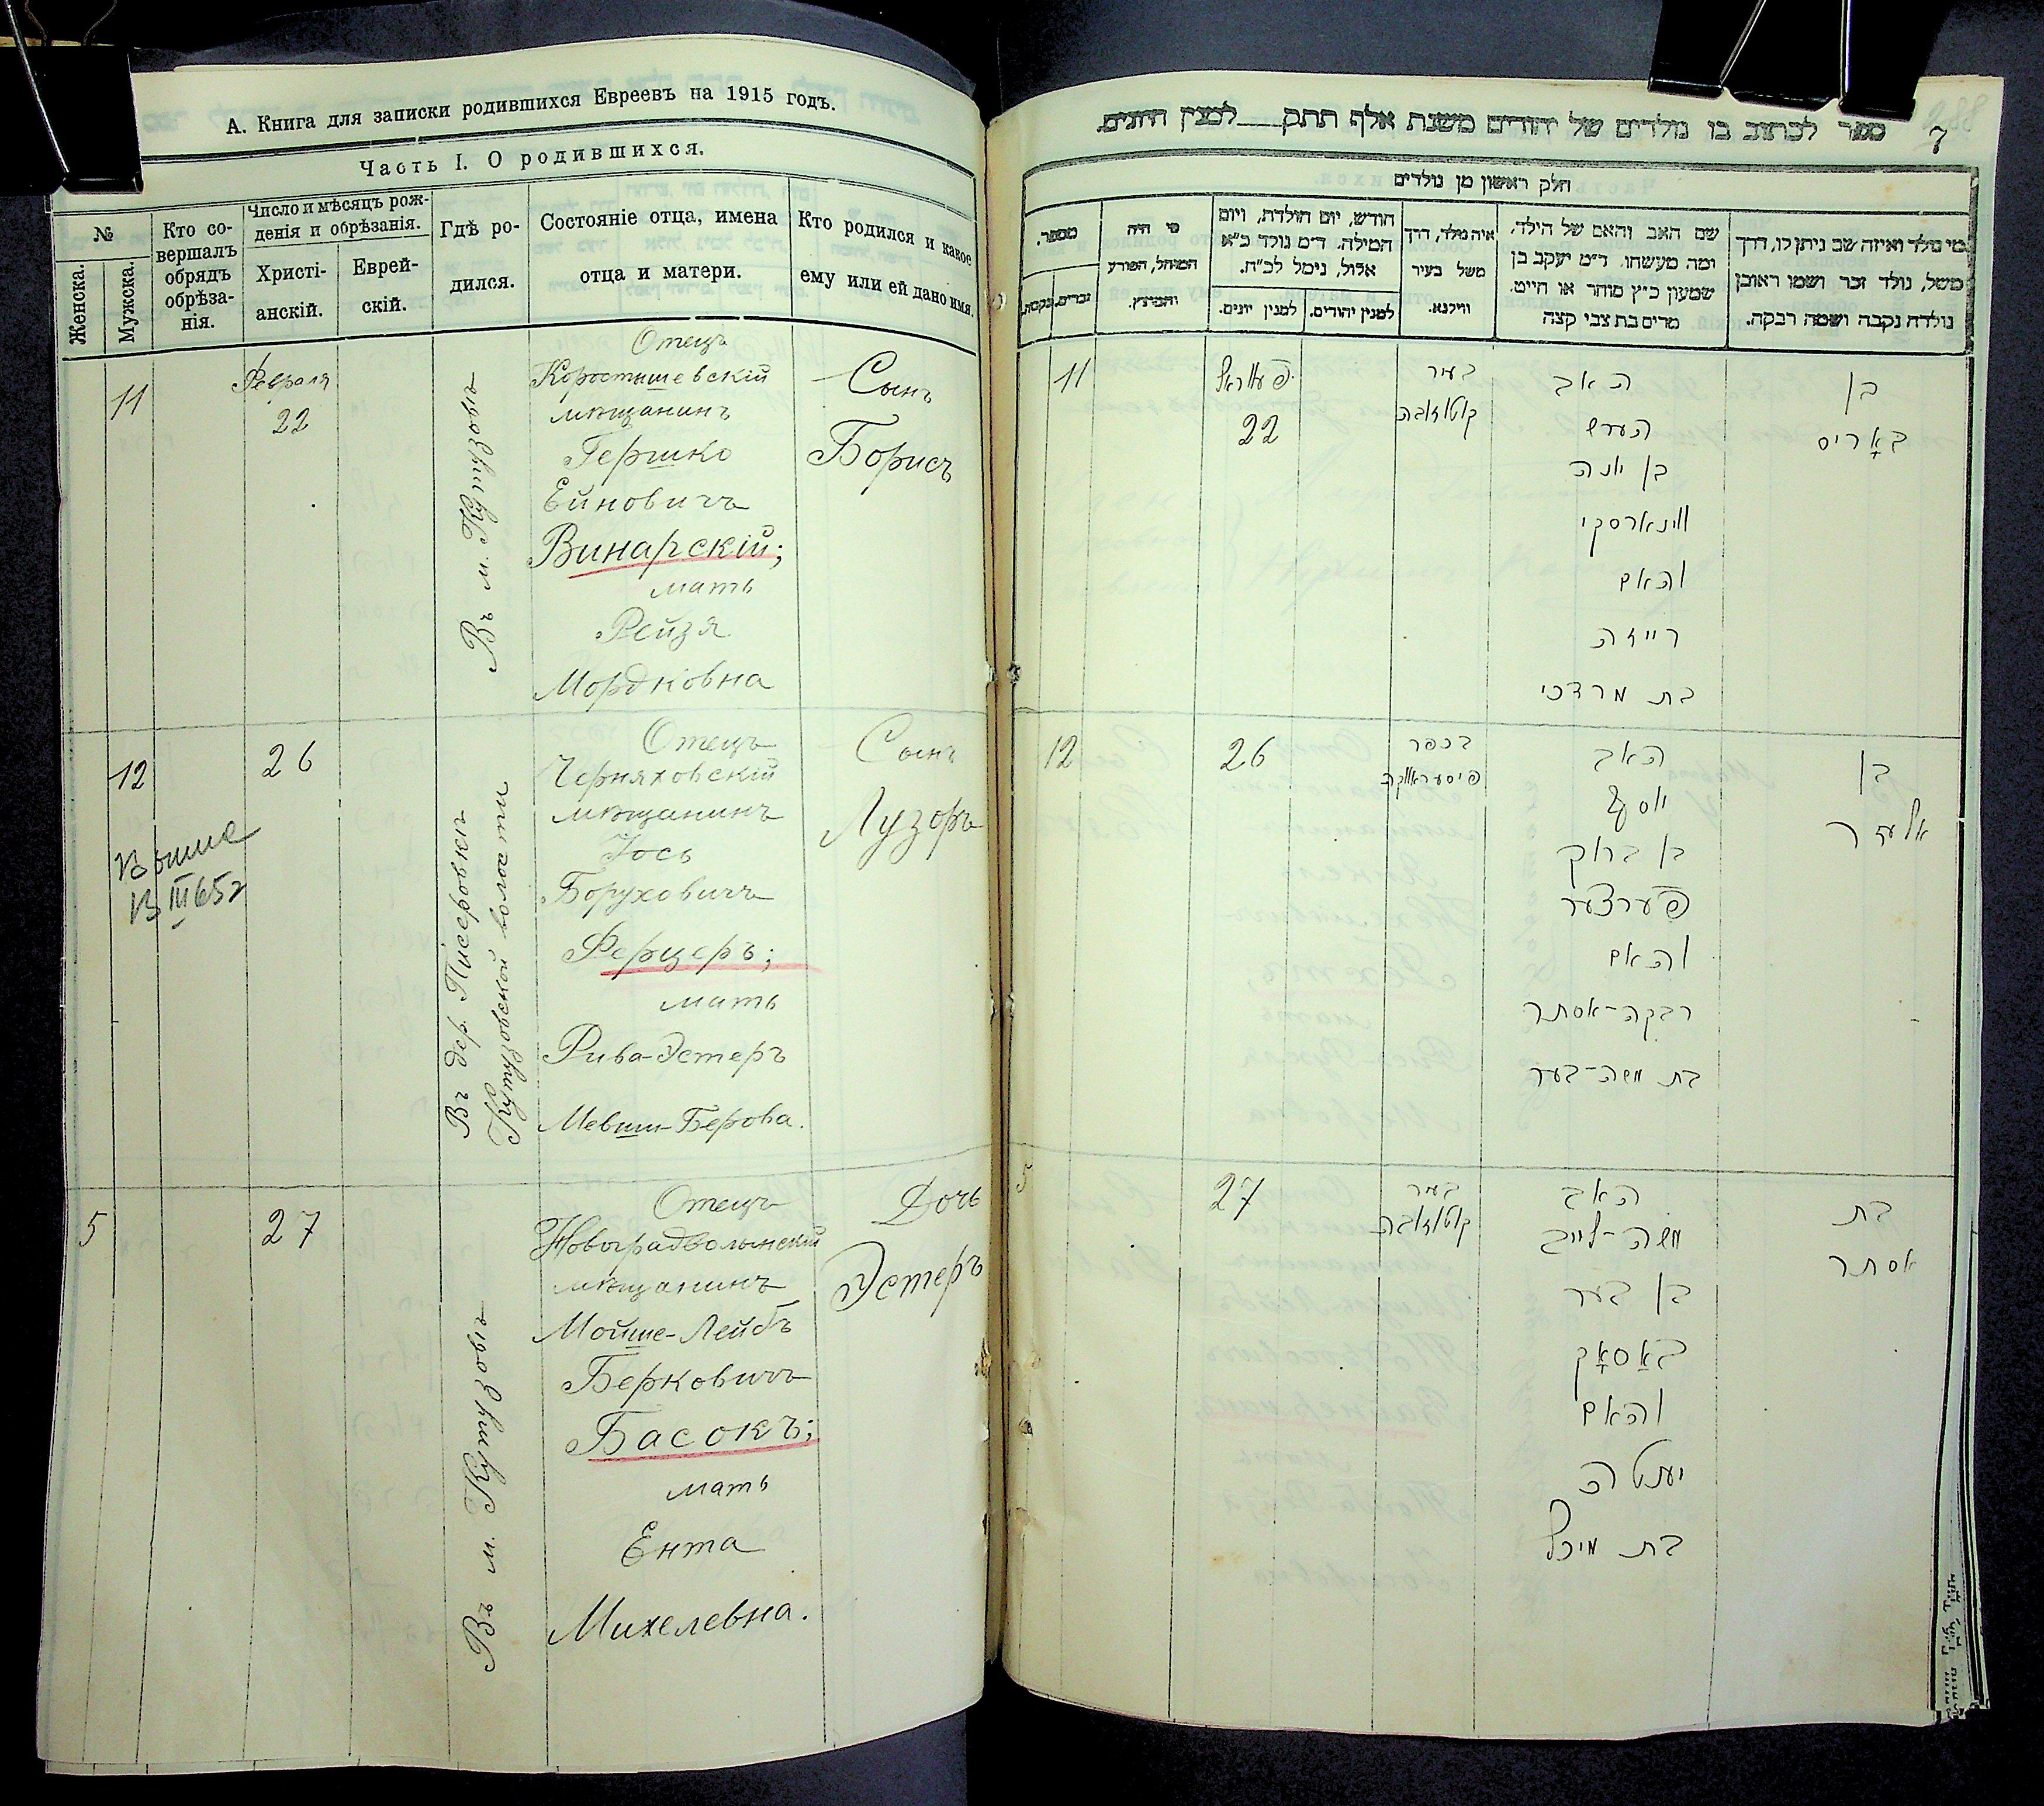 А. Книга для записки родившихся Евреевъ на 1915 годъ.
Часть I. О родившихся.
№
Женска.
Мужска.
Кто со-
вершалъ
обрядъ
обрѣза-
нія.
Число и мѣсяцъ рож-
денія и обрѣзанія.
Христі-
анскій.
Еврей-
скій.
Гдѣ ро-
дился.
Состояніе отца, имена
отца и матери.
Кто родился и какое
ему или ей дано имя.
11
Февраля
22
Въ м. Кутузовъ
Отецъ
Коростышевскій
мѣщанинъ
Гершко
Ейновичъ
Винарскій;
мать
Рейзя
Мордковна
Сынъ
Борисъ
12
26
Въ дер. Писеровкъ
Кутузовской волости
Отецъ
Черняховскій
мѣщанинъ
Іось
Боруховичъ
Ферцеръ;
мать
Рива-Эстеръ
Мевши-Берова.
Сынъ
Лузоръ
III 65г
5
27
Въ м. Кутузовъ
Отецъ
Новоградволынскій
мѣщанинъ
Мойше-Лейбъ
Берковичъ
Басокъ;
мать
Ента
Михелевна.
Дочь
Эстеръ
ספר לכתוב בו נולדים של יהודים משנת אלף תתק למנין היונים.
7
חלק ראשון מן נולדים
מספר.
נקבות.
זכרים.
מי היה
המוהל, הפורע
והמוצץ.
חודש, יום הולדת, ויום
המילה. ד״מ נולד כ״א
אלול, נימל לכ״ח.
למנין יונים.
למנין יהודים.
איה נולד, דרך
משל בעיר
ווילנא.
שם האב והאם של הילד,
ומה מעשהו. ד״מ יעקב בן
שמעון כ״ץ סוחר או חייט.
מרים בת צבי קצה
מי נולד ואיזה שם ניתן לו, דרך
משל, נולד זכר ושמו ראובן
נולדה נקבה ושמה רבקה.
11
פעוראל
22
בעיר
קוטוזובה
האב
הערש
בן יונה
ווינארסקי
והאם
רייזה
בת מרדכי
בן
באָריס
12
26
בכפר
פיסעראווקה
האב
יוסף
בן ברוך
פערצער
והאם
רבקה-אסתר
בת משה-בער
בן
אלעזר
5
27
בעיר
קוטוזובה
האב
משה-לייב
בן בער
באַסאָק
והאם
יענטה
בת מיכל
בת
אסתר